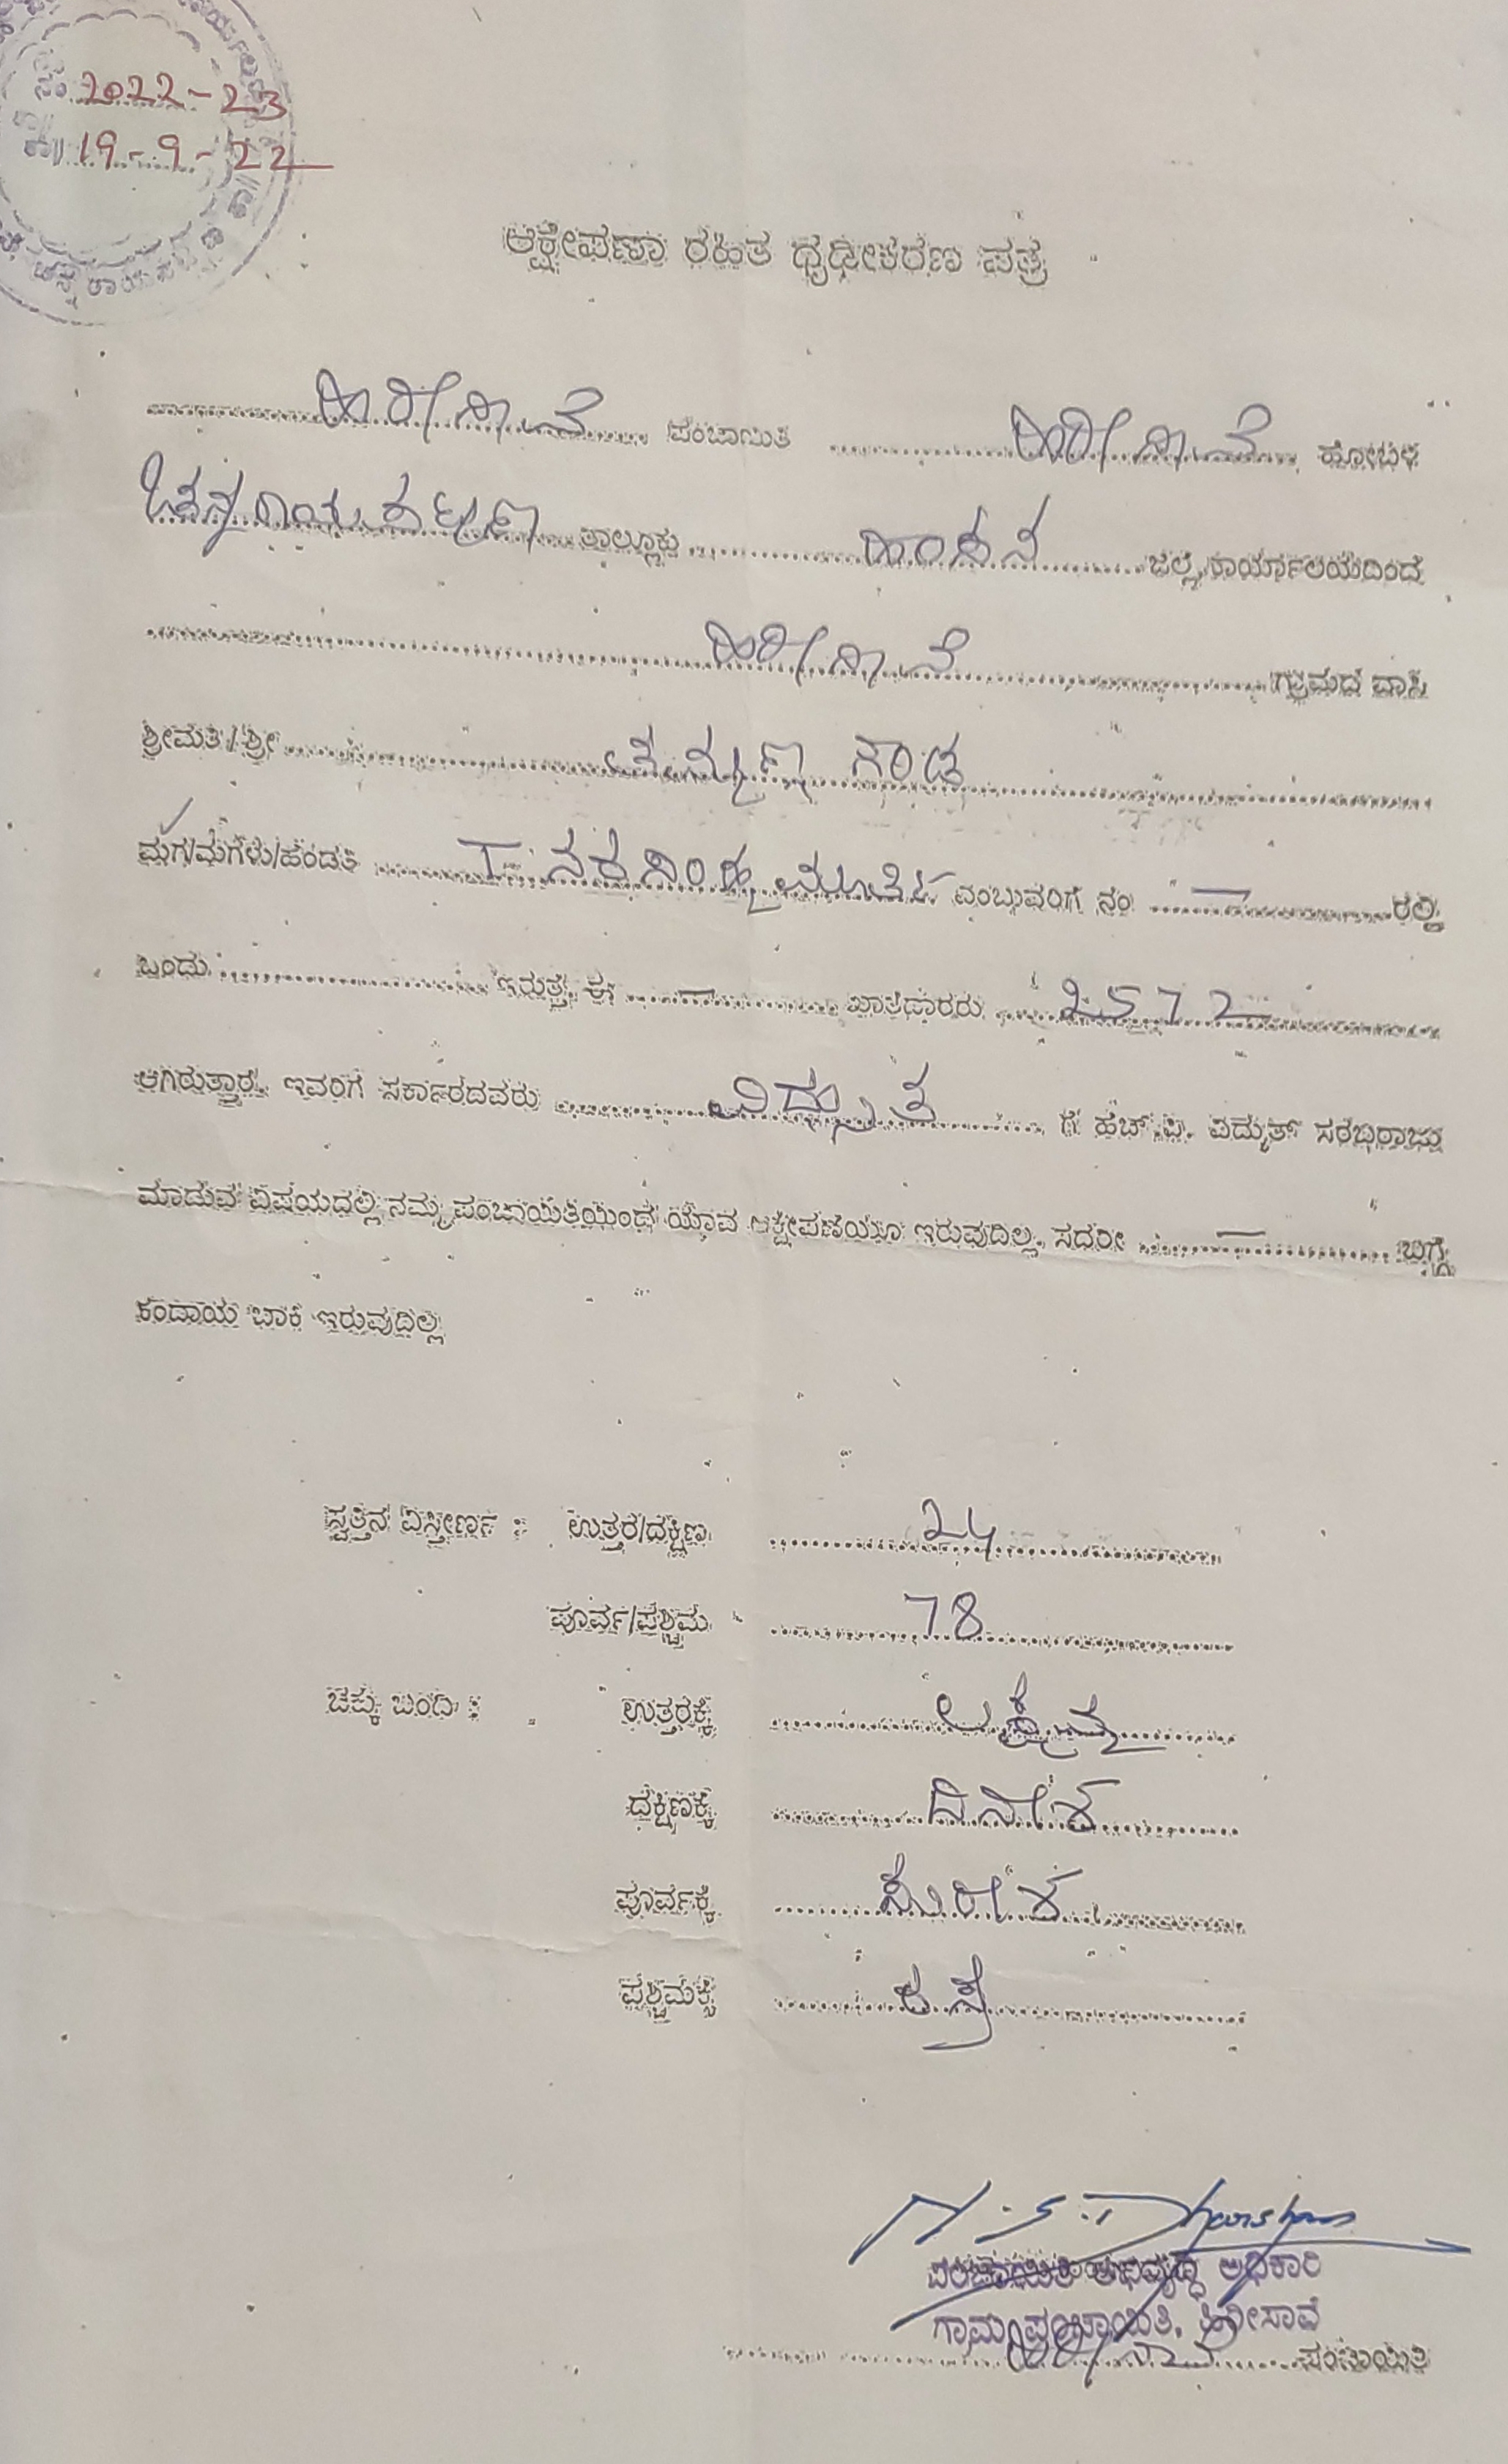 ನಂ 2022-23
19-9-22
ಆಕ್ಷೇಪಣಾ ರಹಿತ ಧೃಢೀಕರಣ ಪತ್ರ
ಹಿರೀಸಾವೆ ಪಂಚಾಯಿತಿ ಹಿರೀಸಾವೆ ಹೋಬಳಿ
ಚನ್ನರಾಯಪಟ್ಟಣ ತಾಲ್ಲೂಕು ಹಾಸನ ಜಿಲ್ಲೆ, ಕಾರ್ಯಾಲಯದಿಂದ
ಹಿರೀಸಾವೆ ಗ್ರಾಮದ ವಾಸಿ
ಶ್ರೀಮತಿ/ಶ್ರೀ ತಿಮ್ಮಣ್ಣ ಗೌಡ
ಮಗ/ಮಗಳು/ಹೆಂಡತಿ T. ನರಸಿಂಹ ಮೂರ್ತಿ ಎಂಬುವರಿಗೆ ನಂ — ರಲ್ಲಿ
ಒಂದು ಇರುತ್ತೆ. ಈ — ಖಾತೆದಾರರು 2572
ಆಗಿರುತ್ತಾರೆ. ಇವರಿಗೆ ಸರ್ಕಾರದವರು ವಿದ್ಯುತ ಗೆ ಹೆಚ್.ಪಿ. ವಿದ್ಯುತ್ ಸರಬರಾಜು
ಮಾಡುವ ವಿಷಯದಲ್ಲಿ ನಮ್ಮ ಪಂಚಾಯಿತಿಯಿಂದ ಯಾವ ಆಕ್ಷೇಪಣೆಯೂ ಇರುವುದಿಲ್ಲ. ಸದರೀ — ಬಗ್ಗೆ
ಕಂದಾಯ ಬಾಕಿ ಇರುವುದಿಲ್ಲ
ಸ್ವತ್ತಿನ ವಿಸ್ತೀರ್ಣ : ಉತ್ತರ/ದಕ್ಷಿಣ 24
ಪೂರ್ವ/ಪಶ್ಚಿಮ 78
ಚಕ್ಕು ಬಂದಿ : ಉತ್ತರಕ್ಕೆ
ಧಕ್ಷಿಣಕ್ಕೆ ದಿನೇಶ
ಪೂರ್ವಕ್ಕೆ ಸುರೇಶ
ಪಶ್ಚಿಮಕ್ಕೆ ರಸ್ತೆ
ಪಂಚಾಯಿತಿ ಅಭಿವೃದ್ಧಿ ಅಧಿಕಾರಿ
ಗ್ರಾಮ ಪಂಚಾಯಿತಿ, ಹಿರೀಸಾವೆ
ಹಿರೀಸಾವೆ ಪಂಚಾಯಿತಿ